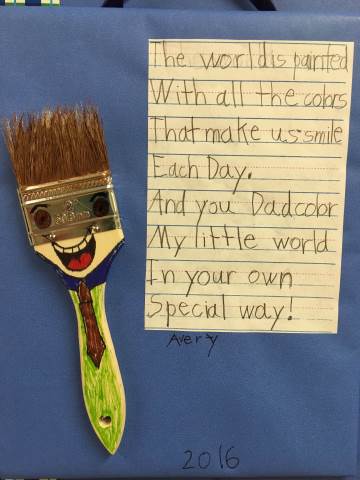 The world is painted
With all the colors
That make us smile
Each Day.
And you Dad color
My little world
In your own
Special way!
Avery
2016